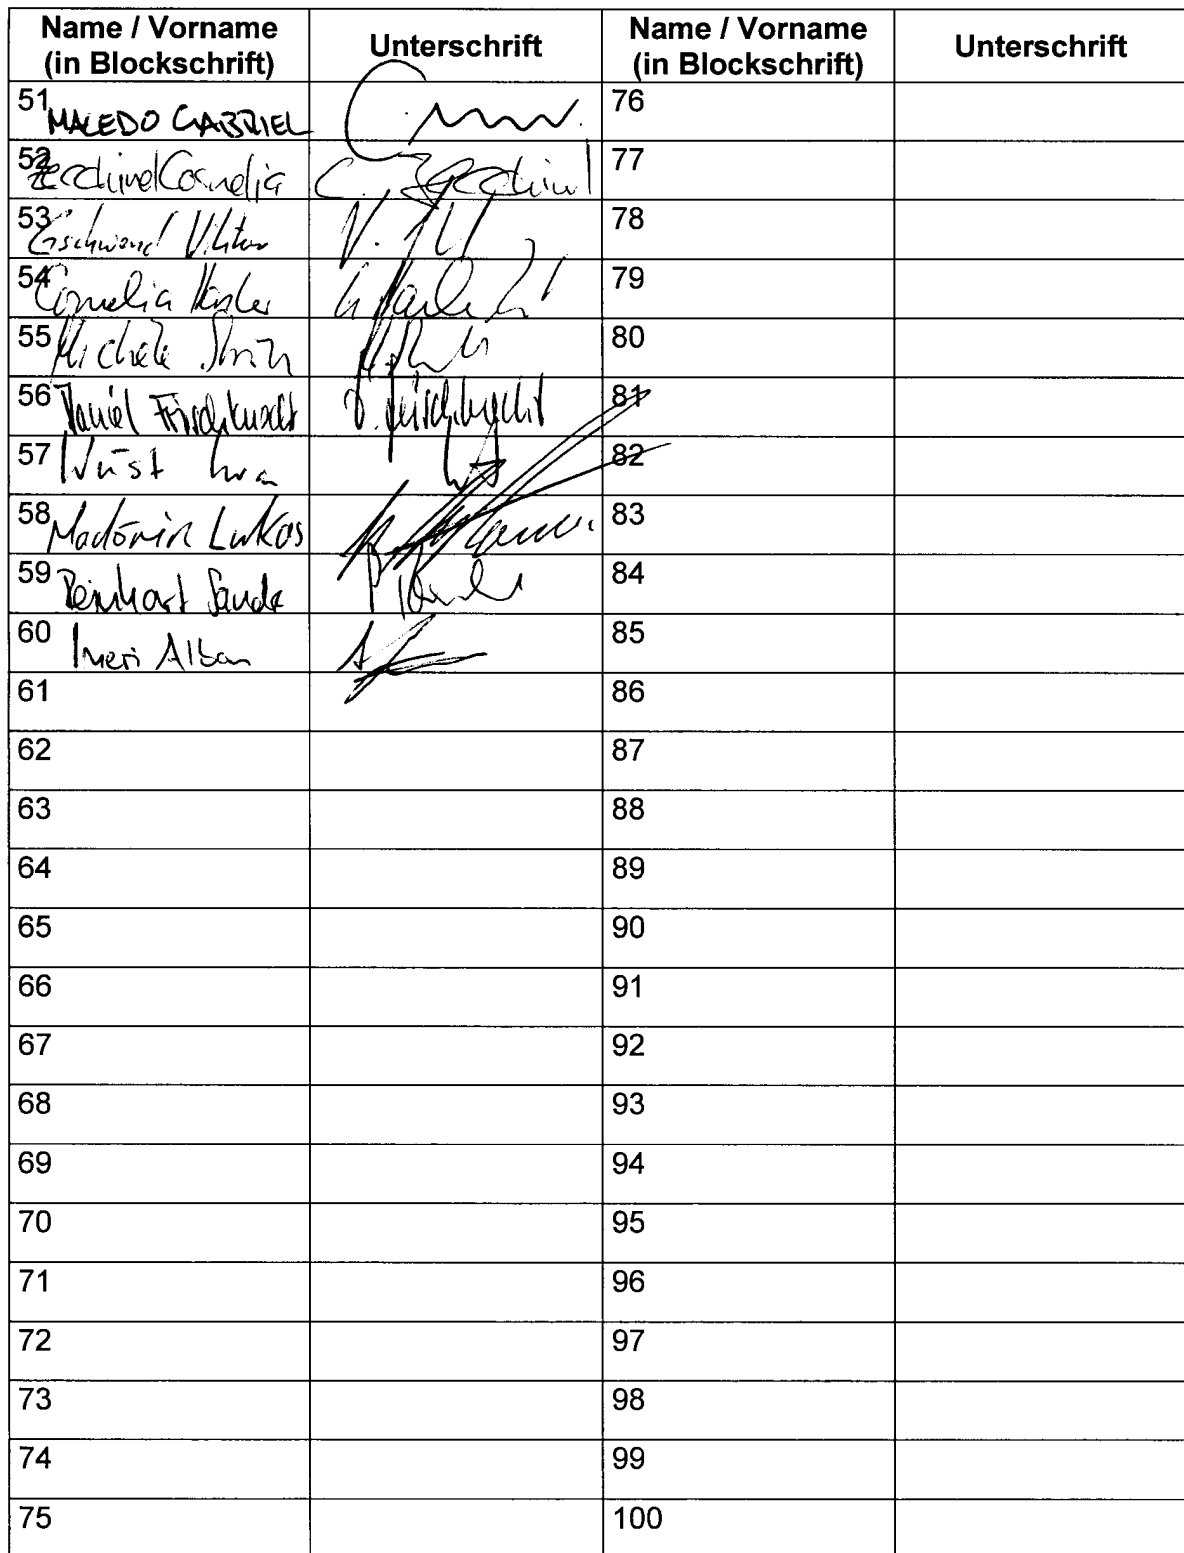 Name / Vorname (in Blockschrift) Unterschrift Name / Vorname (in Blockschrift) Unterschrift
51 MACEDO GABRIEL 76
52 Zecchinel Cornelia C. Zecchinel 77
53 Gschwend Viktor V. 78
54 Cornelia 79
55 Michele 80
56 Daniel Frischknecht D. Frischknecht 81
57 Wüst 82
58 Madörin Lukas 83
59 Reinhart 84
60 Imeri Alban 85
61 86
62 87
63 88
64 89
65 90
66 91
67 92
68 93
69 94
70 95
71 96
72 97
73 98
74 99
75 100